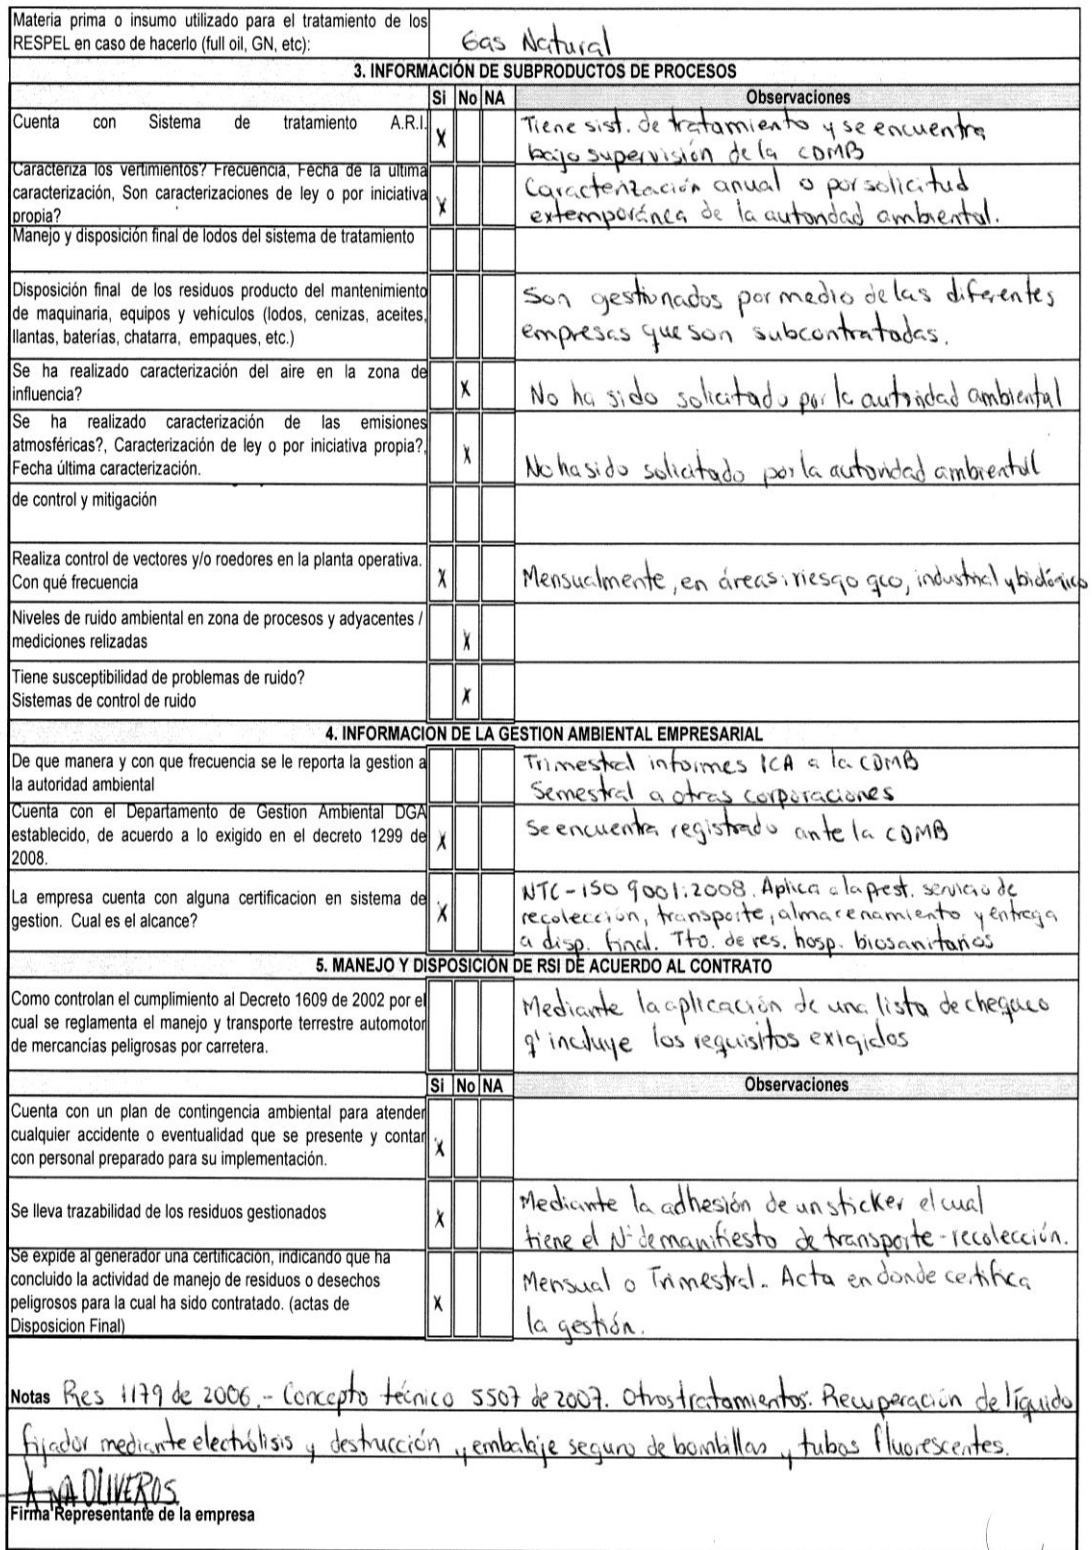 Materia prima o insumo utilizado para el tratamiento de los
RESPEL en caso de hacerlo (full oil, GN, etc):
Gas Natural
3. INFORMACIÓN DE SUBPRODUCTOS DE PROCESOS
Si No NA Observaciones
Cuenta con Sistema de tratamiento A.R.I.
X
Tiene sist. de tratamiento y se encuentra
bajo supervisión de la CDMB
Caracteriza los vertimientos? Frecuencia, Fecha de la ultima
caracterización, Son caracterizaciones de ley o por iniciativa
propia?
X
Caracterización anual o por solicitud
extemporánea de la autoridad ambiental.
Manejo y disposición final de lodos del sistema de tratamiento
Disposición final de los residuos producto del mantenimiento
de maquinaria, equipos y vehículos (lodos, cenizas, aceites,
llantas, baterías, chatarra, empaques, etc.)
Son gestionados por medio de las diferentes
empresas que son subcontratadas.
Se ha realizado caracterización del aire en la zona de
influencia?
X
No ha sido solicitado por la autoridad ambiental
Se ha realizado caracterización de las emisiones
atmosféricas?, Caracterización de ley o por iniciativa propia?,
Fecha última caracterización.
X
No ha sido solicitado por la autoridad ambiental
de control y mitigación
Realiza control de vectores y/o roedores en la planta operativa.
Con qué frecuencia
X
Mensualmente, en áreas: riesgo qco, industrial y biológico
Niveles de ruido ambiental en zona de procesos y adyacentes /
mediciones relizadas
X
Tiene susceptibilidad de problemas de ruido?
Sistemas de control de ruido
X
4. INFORMACION DE LA GESTION AMBIENTAL EMPRESARIAL
De que manera y con que frecuencia se le reporta la gestion a
la autoridad ambiental
Trimestral informes ICA a la CDMB
Semestral a otras corporaciones
Cuenta con el Departamento de Gestion Ambiental DGA
establecido, de acuerdo a lo exigido en el decreto 1299 de
2008.
X
Se encuentra registrado ante la CDMB
La empresa cuenta con alguna certificacion en sistema de
gestion. Cual es el alcance?
X
NTC-ISO 9001:2008. Aplica a la prest. servicio de
recolección, transporte, almacenamiento y entrega
a disp. final. Tto. de res. hosp. biosanitarios
5. MANEJO Y DISPOSICIÓN DE RSI DE ACUERDO AL CONTRATO
Como controlan el cumplimiento al Decreto 1609 de 2002 por el
cual se reglamenta el manejo y transporte terrestre automotor
de mercancías peligrosas por carretera.
Mediante la aplicación de una lista de chequeo
q' incluye los requisitos exigidos
Si No NA Observaciones
Cuenta con un plan de contingencia ambiental para atender
cualquier accidente o eventualidad que se presente y contar
con personal preparado para su implementación.
X
Se lleva trazabilidad de los residuos gestionados
X
Mediante la adhesión de un sticker el cual
tiene el N° de manifiesto de transporte-recolección.
Se expide al generador una certificación, indicando que ha
concluido la actividad de manejo de residuos o desechos
peligrosos para la cual ha sido contratado. (actas de
Disposicion Final)
X
Mensual o Trimestral. Acta en donde certifica
la gestión.
Notas Res 1179 de 2006. - Concepto técnico 5507 de 2007. Otros tratamientos: Recuperación de líquido
fijador mediante electrólisis y destrucción y embalaje seguro de bombillas y tubos fluorescentes.
ANA OLIVEROS.
Firma Representante de la empresa